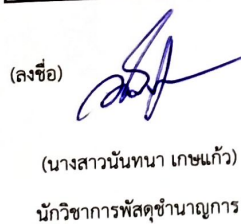 (ลงชื่อ)
(นางสาวนันทนา เกษแก้ว)
นักวิชาการพัสดุชำนาญการ